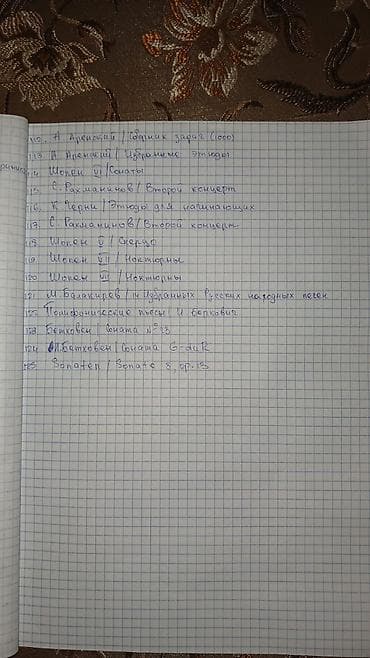 112. А Аренский / Сборник задач (1000)
113 А. Аренский / Избранные этюды
114 Шопен VI / Сонаты
115. С. Рахманинов / Второй концерт
116. К Черни / Этюды для начинающих
117. С. Рахманинов / Второй концерт
118. Шопен V / Скерцо
119. Шопен VII / Ноктюрны
120 Шопен VII / Ноктюрны
121. М. Балакирев / 14 Избранных Русских народных песен
122 Полифонические пьесы / И. Беркович
123 Бетховен / Соната №23
124 Л. Бетховен / Соната G-dur
125 Sonaten / Sonate 8, op. 13